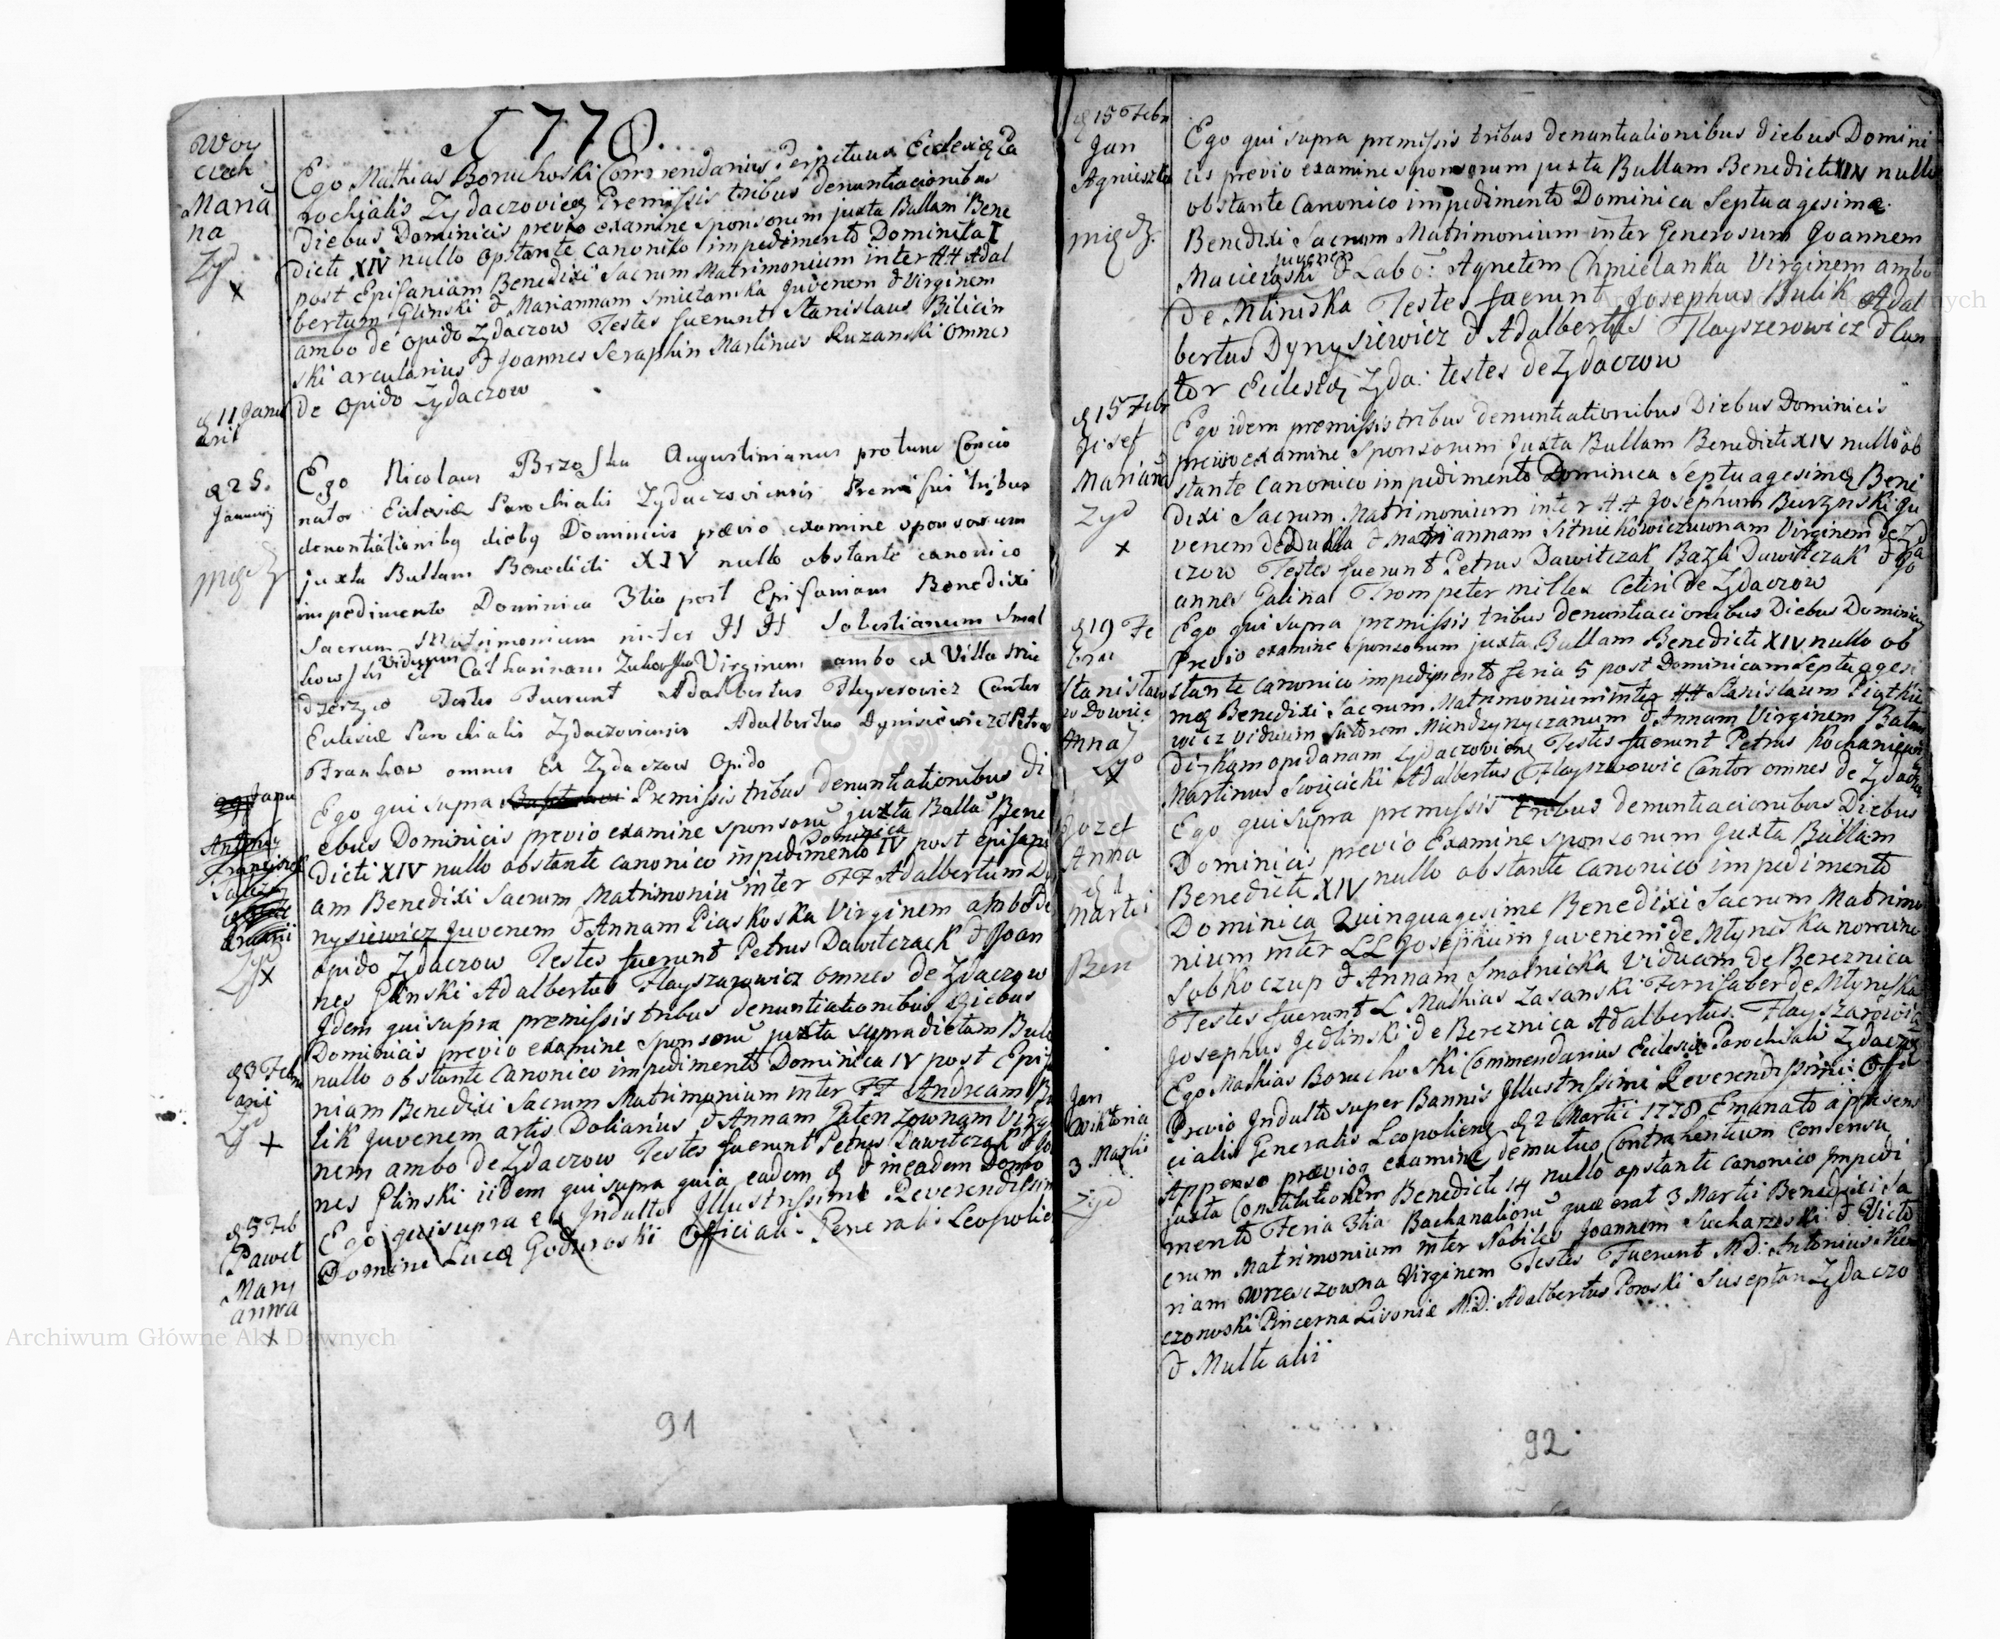 1778.
Woy
ciech
Marian
na
Zyd
x
Ego Mathias Boruchoski Commendarius Perpetuus Ecclesiæ Pa
rochialis Zydaczoviens Premissis tribus denuntiacionibus
diebus Dominicis previo examine sponsorum juxta Bullam Bene
dicti XIV nullo opstante canoniko impedimento Dominica I
post Epifaniam Benedixi Sacrum Matrimonium inter HH Adal
bertum Glinski & Mariannam Smietanska Juvenem & Virginem
ambo de opido Zydaczow Testes fuerunt Stanislaus Bilicin
ski arcularius & Joannes Seraphin Martinus Ruzanski omnes
de opido Zydaczow
d 11 Janu
arii
d 25.
Januarij
międz
Ego Nicolaus Brzoska Augustinianus protunc Concio
nator Ecclesiæ Parochialis Zydaczoviensis Premissis tribus
denontiationibq diebq Dominicis prævio examine sponsorum
juxta Bullam Benedicti XIV nullo obstante canonico
impedimento Dominica 3tia post Epifaniam Benedixi
Sacrum Matrimonium inter HH Sebestianum Smal
kowski Viduum et Catharinam Virginem ambo ex Villa Mie
dzerzyc Testes Fuerunt Adalbertus Fleyserowicz Cantor
Eclesiæ Parochialis Zydaczoviensis Adalbertus Dynisiewicz Petrus
Frankow omnes Ex Zydaczow Opido
29 Janu
Antoni
Franciszek
Zyd x
Ego qui supra Premissis tribus denuntiationibus di
ebus Dominicis previo examine sponsorũ juxta Bullã Bene
dicti XIV nullo obstante canonico impedimento Dominica IV post epifani
am Benedixi Sacrum Matrimoniũ inter FF Adalbertum Dy
nysiewicz Juvenem & Annam Piaskoska Virginem ambo De
opido Zydaczow Testes fuerunt Petrus Dawitczack & Joan
nes Glinski Adalbertus Flayszarowicz omnes de Zydaczow
d 3 Febru
arii
Zyd
x
Idem qui supra premissis tribus denuntiationibus Diebus
Dominicis previo examine sponsorũ juxta supra dictam Bulla
nullo obstante canonico impedimento Dominica IV post Epifa
niam Benedixi Sacrum Matrimonium inter FF Andream
lik Juvenem artis Doliarius & Annam Galenzownam Virgi
nem ambo de Zydaczow Testes fuerunt Petrus Dawitczak & Joa
nes Glinski iidem qui supra quia eadem d & in eadem Domo
d 5 Feb
Paweł
Mary
anna
x
Ego qui supra ex Indulto Illustrissimi Reverendissim
Domini Lucæ Godurski Officialis Generalis Leopolien
91
d 15 Febr
Jan
Agnieszka
międz.
Ego qui supra premissis tribus denuntiationibus diebus Domini
cis previo examine sponsorum juxta Bullam Benedicti XIV nullo
obstante canonico impedimento Dominica Septuagesima
Benedixi Sacrum Matrimonium inter Generosum Joannem
Macieroski juvenem & Labo: Agnetem Chmielanka Virginem ambo
de Mliniska Testes fuerunt Josephus Bulik Adal
bertus Dynysiewicz & Adalbertus Flayszerowicz & Can
tor Eclesiæ Zyda: testes de Zydaczow
d 15 Febr
Jozef
Mariana
Zyd
x
Ego idem premissis tribus denuntiationibus Diebus Dominicis
previo examine sponsorum juxta Bullam Benedicti XIV nullo ob
stante canonico impedimento Dominica Septuagesimæ Bene
dixi Sacrum Matrimonium inter HH Josephum Burzynski Ju
venem de Dukla & Mariannam Sitnichowiczuwnam Virginem de Zyda
czow Testes fuerunt Petrus Dawitczak Bazli Dawitczak & Jo
annes Galina Trompeter miltex Celin de Zydaczow
d 19 Fe
brua
Stanisław
wdowiec
Anna
Zyd
x
Ego qui supra premissis tribus denuntiacionibus Diebus Dominicis
Previo examine sponsorum juxta Bullam Benedicti XIV nullo ob
stante canonico impedimento feria 5 post Dominicam Septuagesi
mæ Benedixi Sacrum Matrimonium inter HH Stanislaum Piątkie
wicz Viduum Sutorem Miendzyrzyczanum & Annam Virginem Balan
dizkam opidanam Zydaczoviens Testes fuerunt Petrus Kochaniewicz
Martinus Swięcicki Adalbertus Flayszarowic Cantor omnes de Zydaczow
Jozef
Anna
d 1
Martii
Ber
Ego qui supra premissis tribus denuntiacionibus Diebus
Dominicis previo Examine sponsorum Juxta Bullam
Benedicti XIV nullo obstante canonico impedimento
Dominica Quinquagesime Benedixi Sacrum Matrimo
nium inter LL Josephum juvenem de Mlyniska nomine
Sobko czup & Annam Smalnicka Viduam de Bereznica
Testes fuerunt L Mathias Zasanski Ferrifaber de Mlyniska
Josephus Jedlinski de Bereznica Adalbertus Flayszarowicz
Jan
Wiktoria
3 Martii
Zyd
Ego Mathias Boruchoski Commendarius Ecclesiæ Parochialis Zydacz
Previo Indulto super Bannis Illustrissimi Reverendissimi Offi
cialis Generalis Leopoliens d 2 Martii 1778 Emanato a presens
Appenso prævioq examine demutuo Contrahentium consensu
juxta Constitutionem Benedicti 14 nullo opstante canonico Impedi
mento Feria 3tia Bachanaliorũ quæ erat 3 Martii Benedixi Sa
crum Matrimonium inter Nobiles Joannem Sucharzeski & Victo
riam Wrzeszczowna Virginem Testes Fuerunt M.D: Antonius
czonoski Pincerna Livoniæ M.D: Adalbertus Poroski Susceptan Zydaczo
& Multi alii
92
Archiwum Główne Akt Dawnych
Archiwum Główne Akt Dawnych